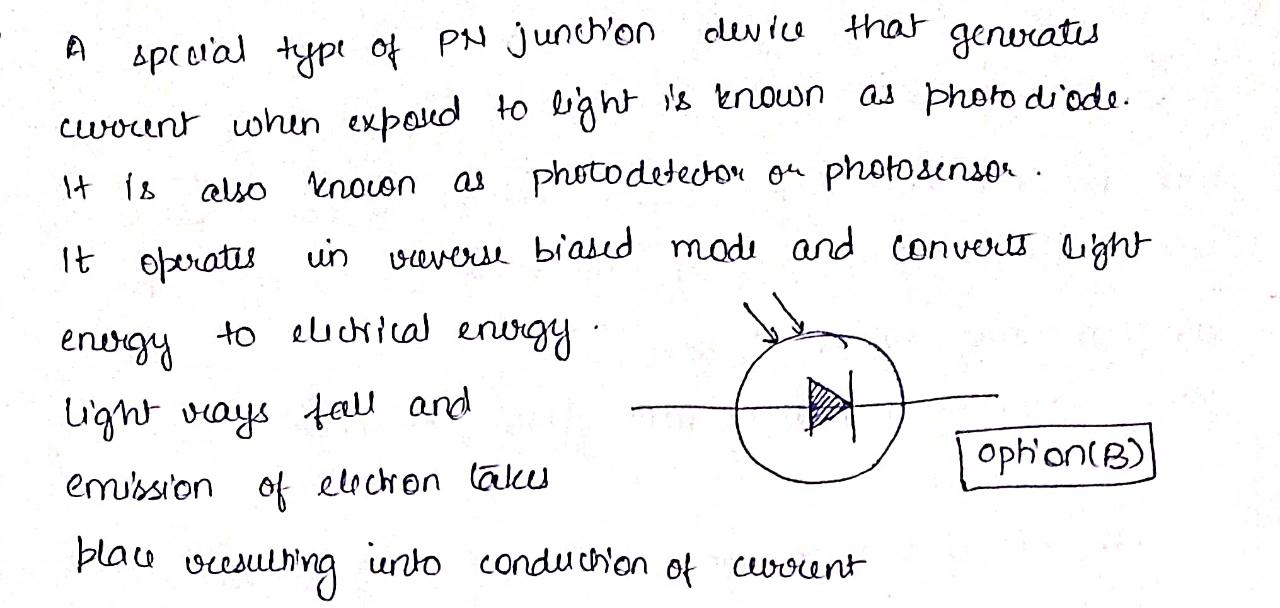 A special type of PN junction device that generates
current when exposed to light is known as photo diode.
It is also known as photodetector or photosensor.
It operates in reverse biased mode and converts light
energy to electrical energy.
light rays fall and
emission of electron takes
place resulting into conduction of current
option(B)